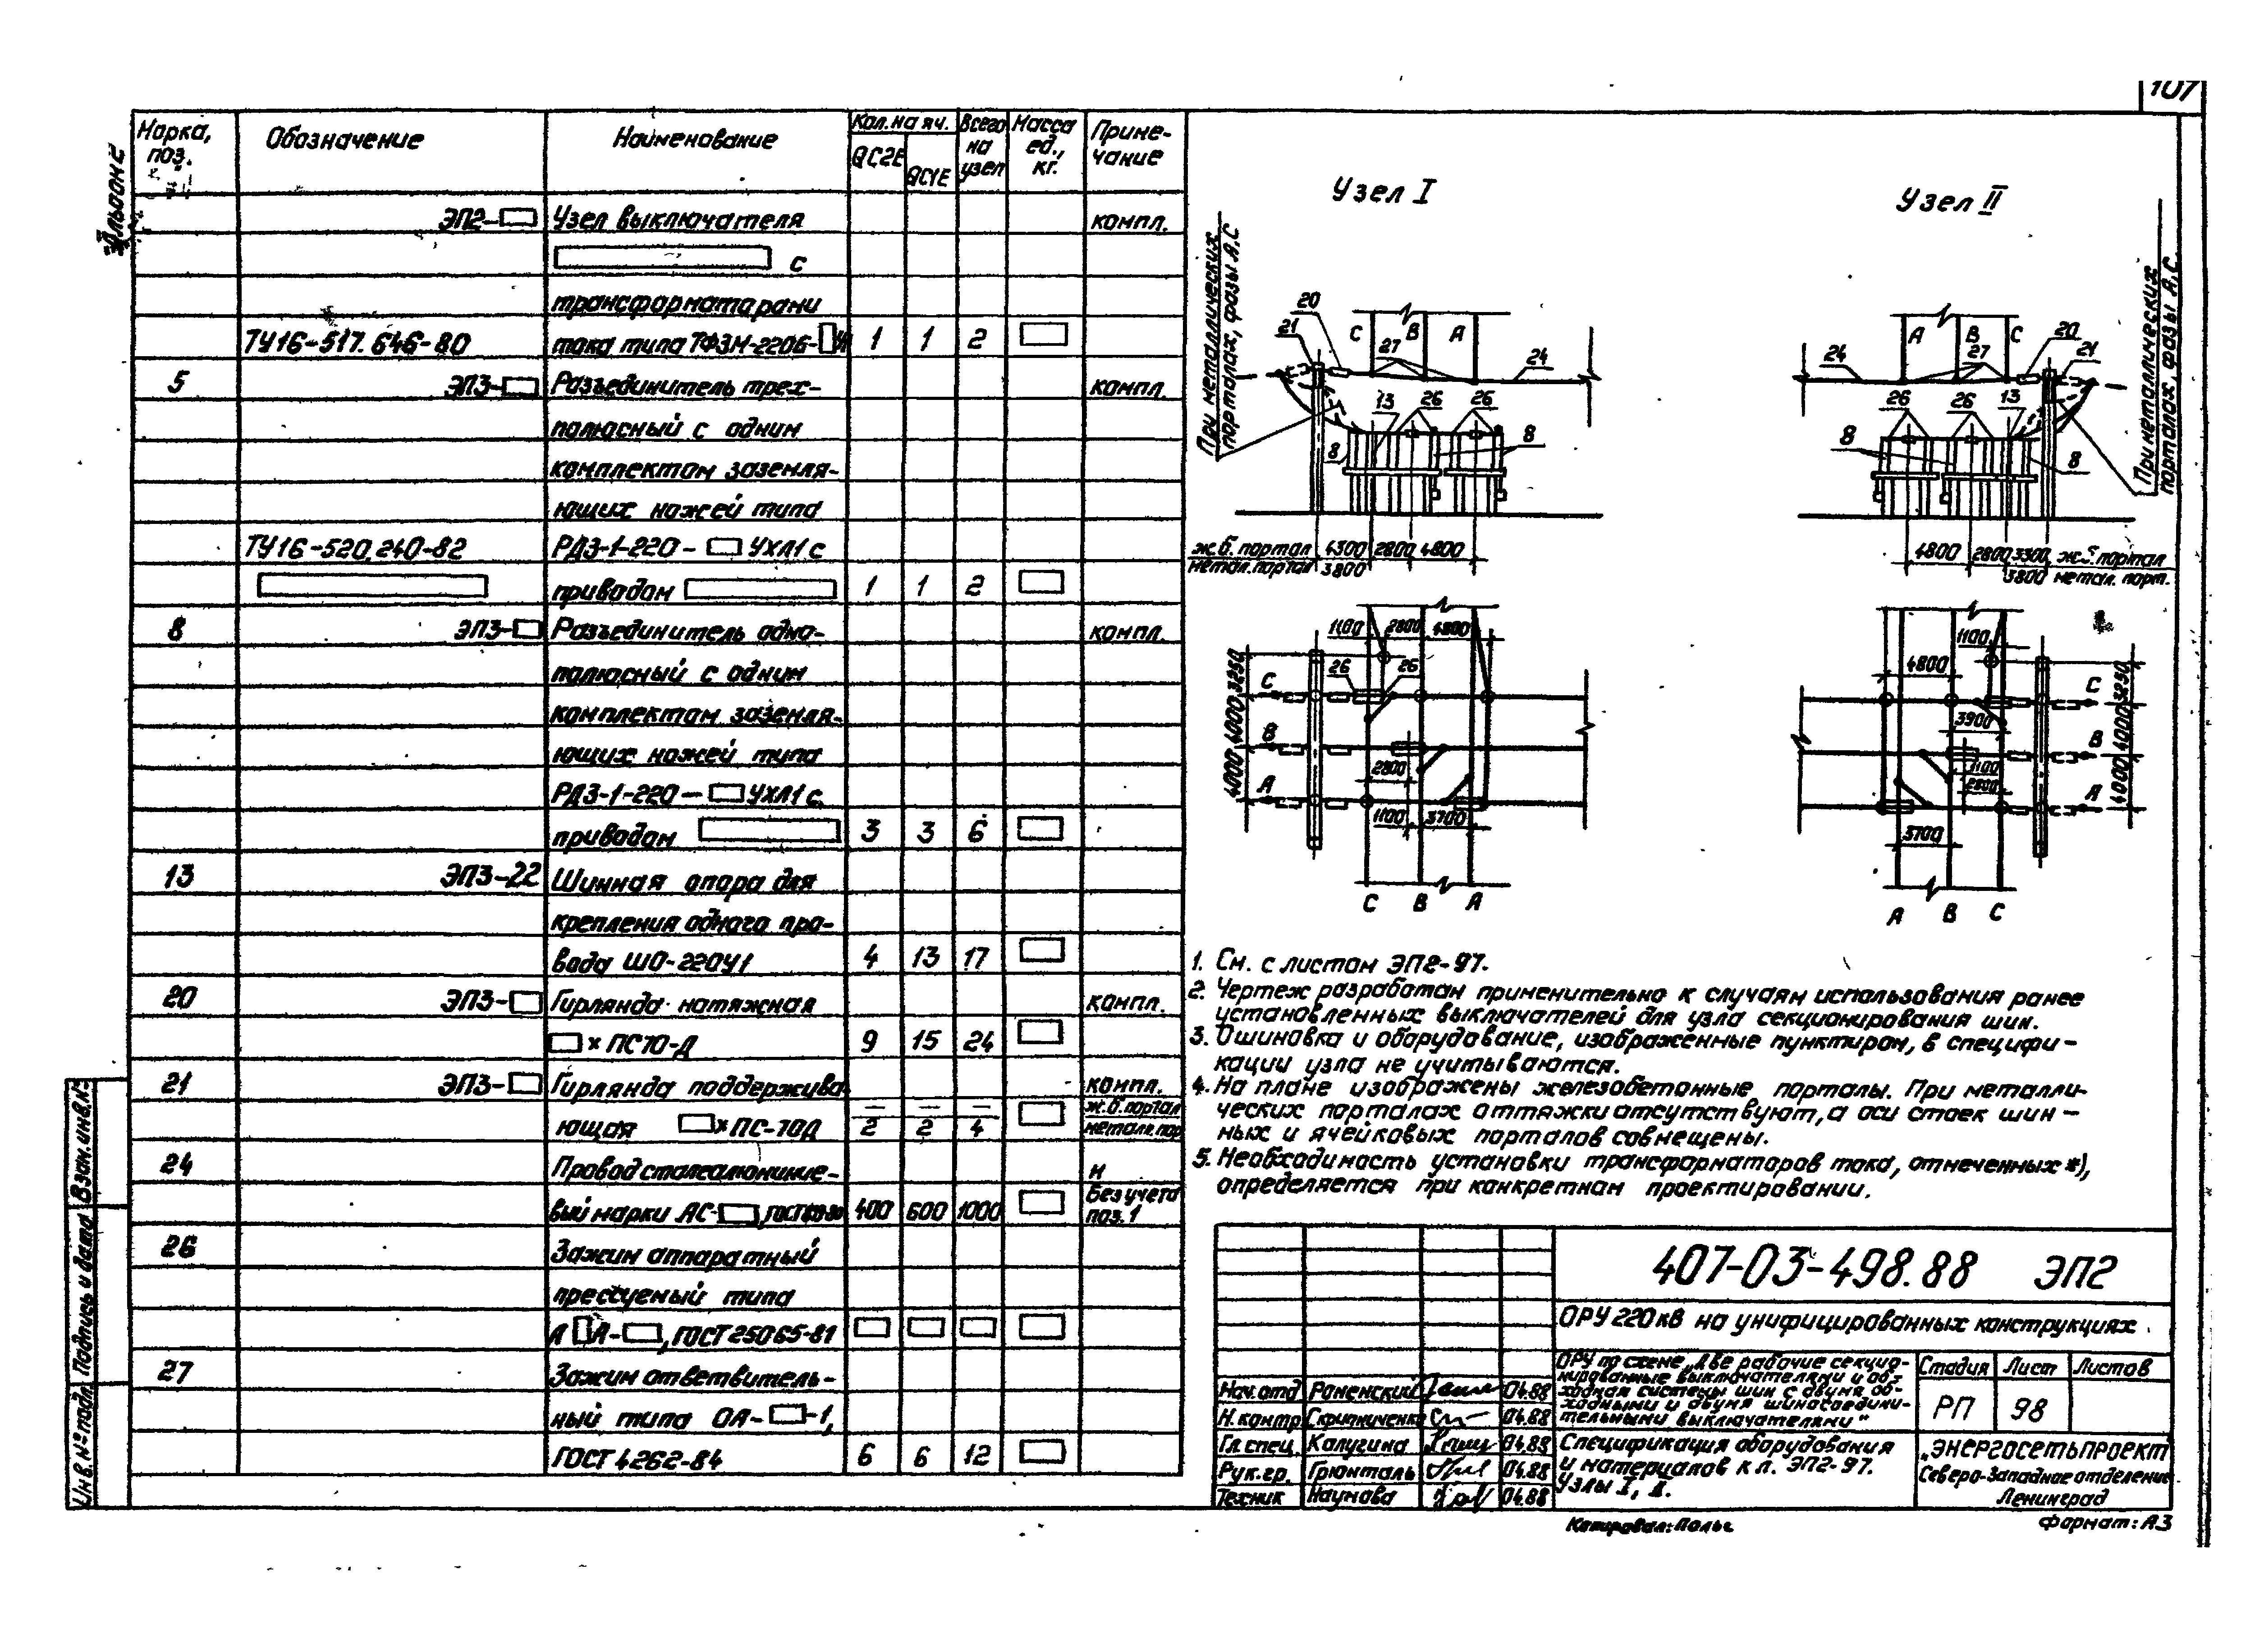 107
Альбом 2
Марка, поз.
Обозначение
Наименование
Кол. на яч.
QC2E
QC1E
Всего на узел
Масса ед., кг.
Приме-чание
ЭП2-
Узел выключателя
компл.
с
трансформаторами
ТУ16-517.646-80
тока типа ТФЗМ-220Б-
1 1 2
5
ЭП3-
Разъединитель трех-
компл.
полюсный с одним
комплектом заземля-
ющих ножей типа
ТУ16-520.240-82
РДЗ-1-220- УХЛ1 с
приводом
1 1 2
8
ЭП3-
Разъединитель одно-
компл.
полюсный с одним
комплектом заземля-
ющих ножей типа
РДЗ-1-220— УХЛ1 с
приводом
3 3 6
13
ЭП3-22
Шинная опора для
крепления одного про-
вода ШО-220У1
4 13 17
20
ЭП3-
Гирлянда натяжная
компл.
× ПС70-Д
9 15 24
21
ЭП3-
Гирлянда поддержива-
компл.
ющая ×ПС-70Д
— — —
ж.б. портал
2 2 4
металл. пор
24
Провод сталеалюминие-
м
вый марки АС-
400 600 1000
Без учета поз. 1
26
Зажим аппаратный
прессуемый типа
А А- , ГОСТ 25065-81
27
Зажим ответвитель-
ный типа ОА- -1,
ГОСТ 4262-84
6 6 12
Узел I
При металлических порталах, фазы А,С
20
21
С В А
27
24
13 26 26
8 8
ж.б. портал 4300 2800 4800
метал. портал 3800
1100 2800 4800
26 26
С
В
А
4000 4000 3250
2800
1100 3700
С В А
Узел II
При металлических порталах, фазы А,С
А В С
24
27
20
21
26 26 13
8 8
4800 2800 3300 ж.б. портал
3800 метал. порт.
1100
4800
3900
С
В
А
4000 4000 3250
1100
2800
3700
А В С
1. См. с листом ЭП2-97.
2. Чертеж разработан применительно к случаям использования ранее
установленных выключателей для узла секционирования шин.
3. Ошиновка и оборудование, изображенные пунктиром, в специфи-
кации узла не учитываются.
4. На плане изображены железобетонные порталы. При металли-
ческих порталах оттяжки отсутствуют, а оси стоек шин-
ных и ячейковых порталов совмещены.
5. Необходимость установки трансформаторов тока, отмеченных *),
определяется при конкретном проектировании.
407-03-498.88 ЭП2
ОРУ 220 кВ на унифицированных конструкциях
ОРУ по схеме „Две рабочие секцио-
нированные выключателями и об-
ходная системы шин с двумя об-
ходными и двумя шиносоедини-
тельными выключателями"
Стадия Лист Листов
РП 98
Нач. отд Роменский 04.88
Н. контр. Скрипниченко 04.88
Гл. спец. Калугина 04.88
Рук. гр. Грюнталь 04.88
Техник Наумова 04.88
Спецификация оборудования
и материалов к л. ЭП2-97.
Узлы I, II.
„ЭНЕРГОСЕТЬПРОЕКТ
Северо-Западное отделение
Ленинград
Формат: А3
Инв. № подл.
Подпись и дата
Взам. инв. №